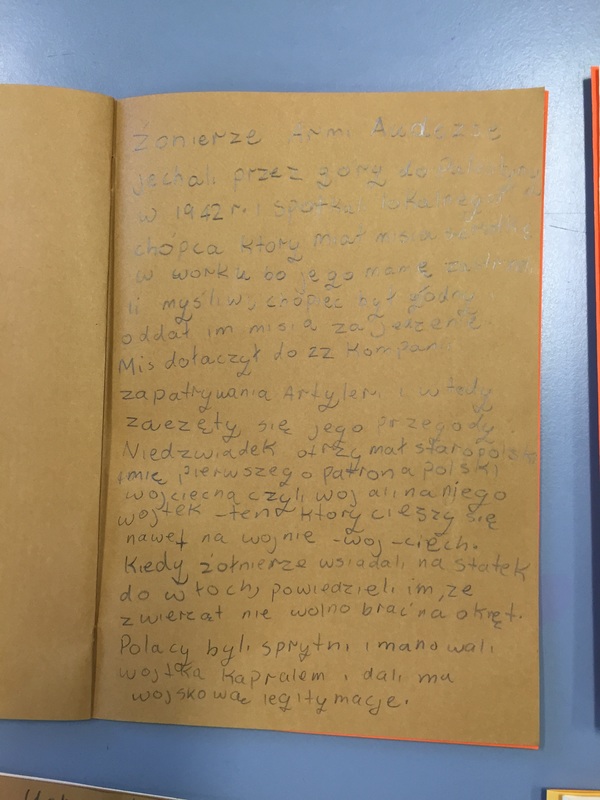 Żonierze Armi Andersa
jechali przez góry do Palestyny
w 1942 r. i spotkali lokalnego
chópca który miał misia
w worku bo jego mamę zastrze
li myśliwi chópiec był głodny
oddał im misia za jedzenie
Mis dołaczył do 22 Kompani
zapatrywania Artyleri i wtedy
zaczęły się jego przegody.
Niedzwiadek otrzymał staropolskie
imię pierwszego patrona polski
wojciecha czyli woj ali na niego
wojtek - ten który cieszy się
nawet na wojnie - woj - ciech.
Kiedy żołnierze wsiadali na statek
do włoch, powiedzieli im, ze
zwierzat nie wolno brać na okręt.
Polacy byli sprytni i manowali
wojtka Kapralem i dali mu
wojskowac legitymacje.